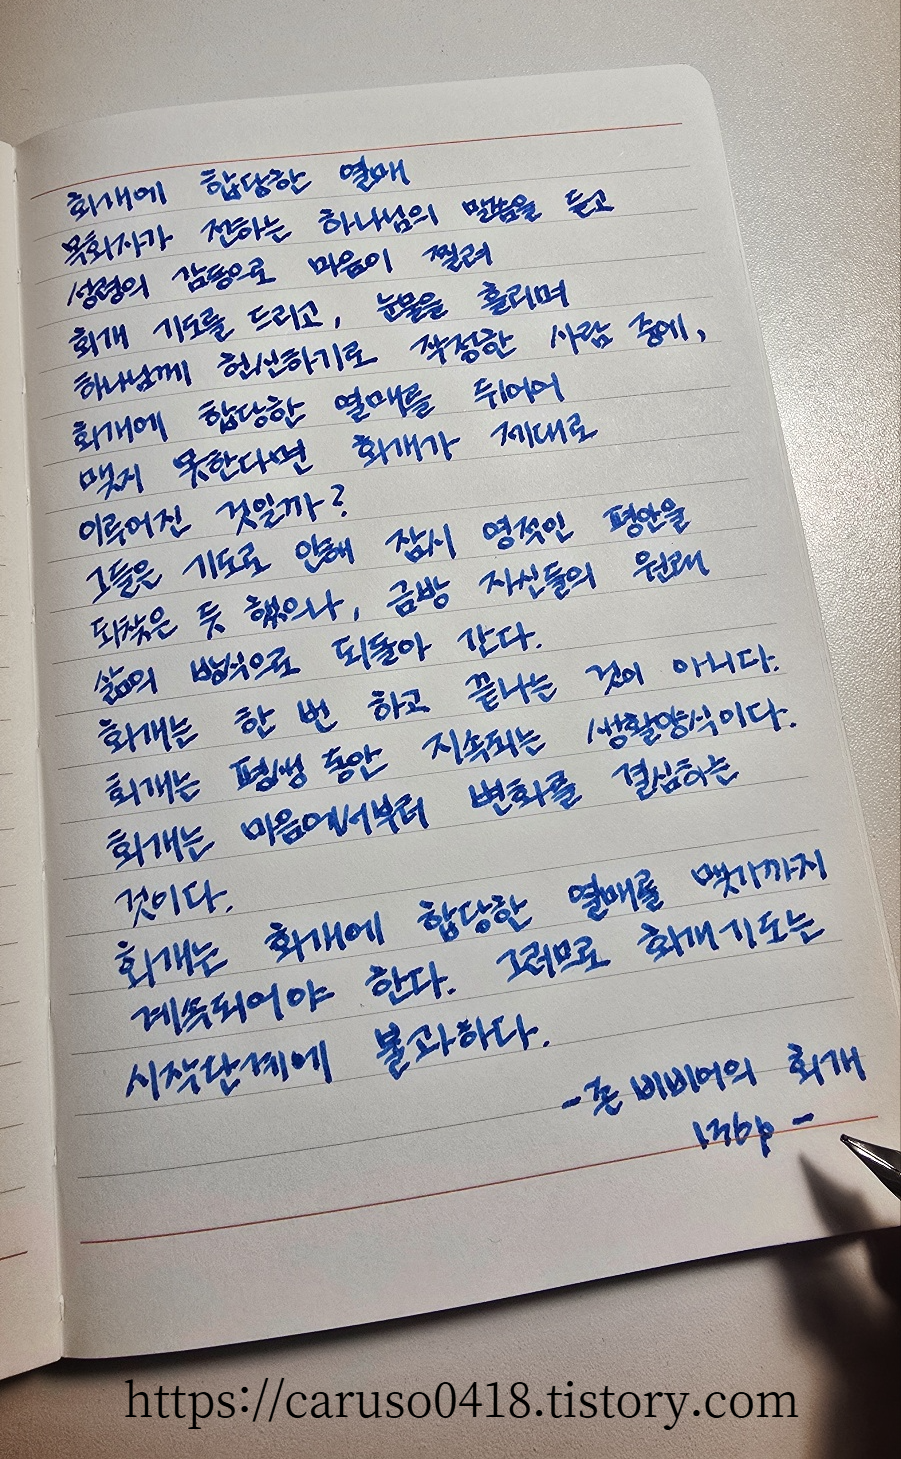 회개에 합당한 열매
목회자가 전하는 하나님의 말씀을 듣고
성령의 감동으로 마음이 찔려
회개 기도를 드리고, 눈물을 흘리며
하나님께 헌신하기로 작정한 사람 중에,
회개에 합당한 열매를 뒤이어
맺지 못한다면 회개가 제대로
이루어진 것일까?
그들은 기도로 인해 잠시 영적인 평안을
되찾은 듯 했으나, 금방 자신들의 원래
삶의 방식으로 되돌아 간다.
회개는 한 번 하고 끝나는 것이 아니다.
회개는 평생 동안 지속되는 생활양식이다.
회개는 마음에서부터 변화를 결심하는
것이다.
회개는 회개에 합당한 열매를 맺기까지
계속되어야 한다. 그러므로 회개기도는
시작단계에 불과하다.
- 존 비비어의 회개
136p -
https://caruso0418.tistory.com